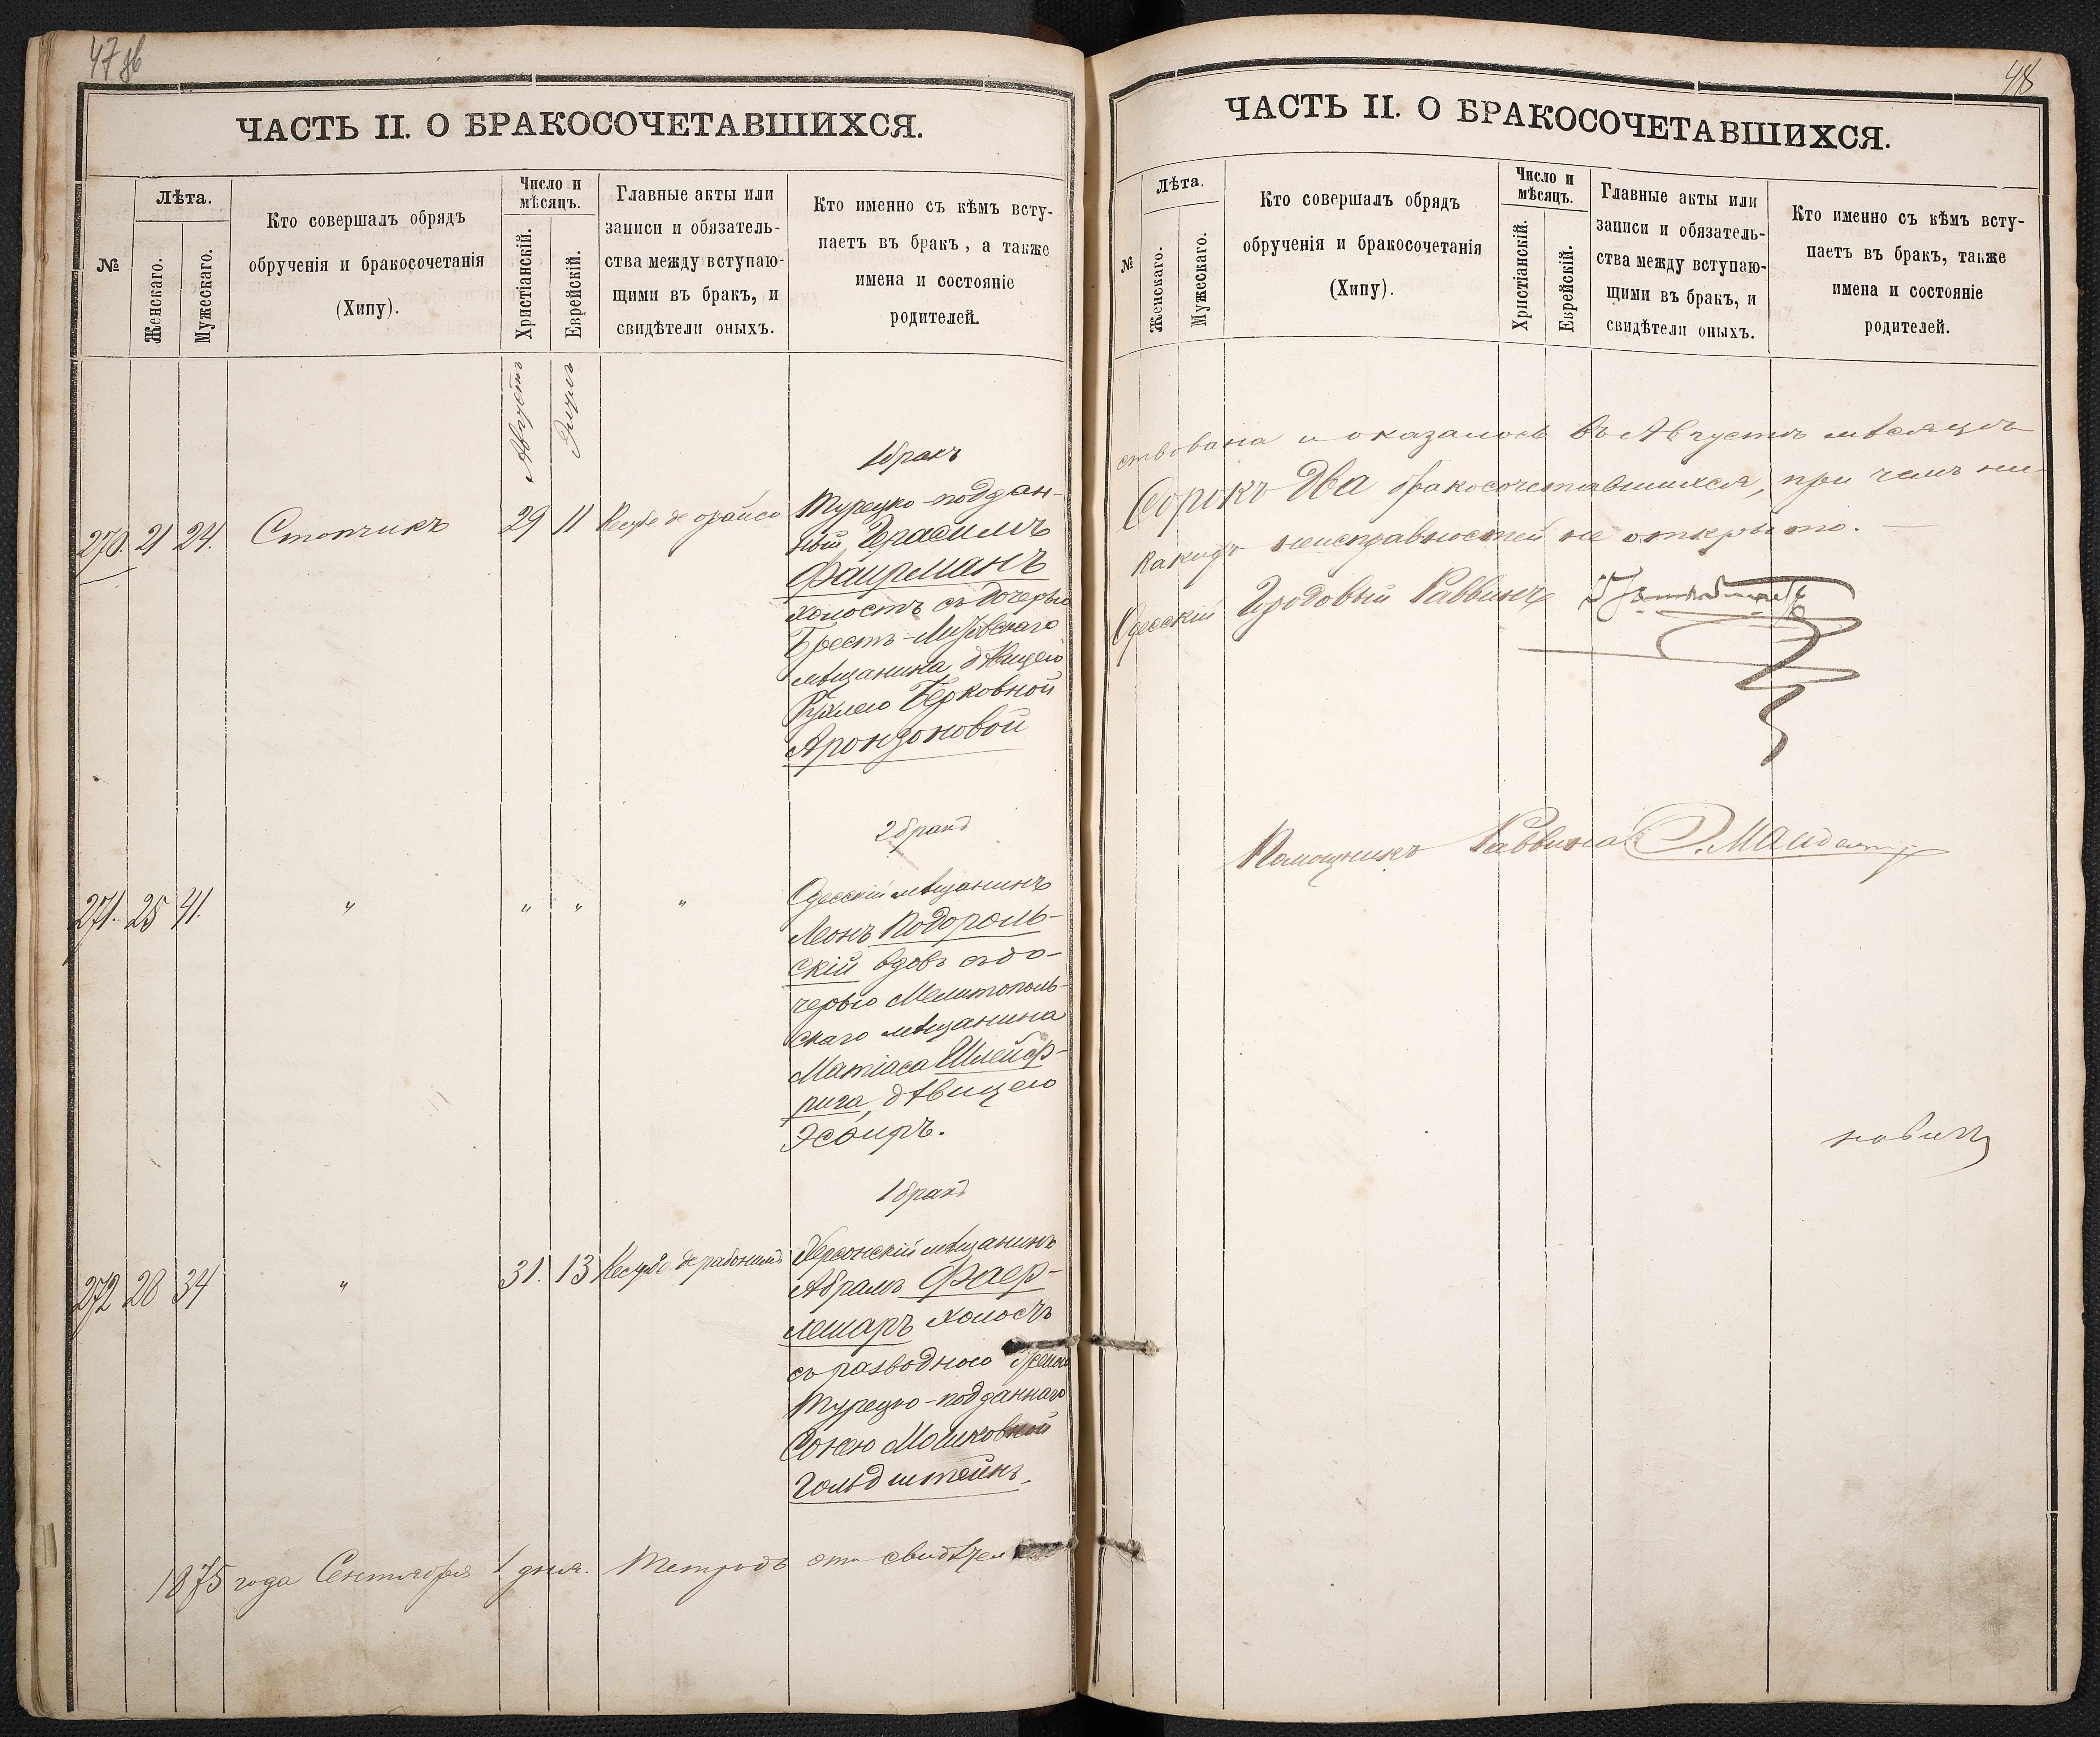 47 об
ЧАСТЬ II. О БРАКОСОЧЕТАВШИХСЯ.
№
Лѣта.
Женскаго.
Мужескаго.
Кто совершалъ обрядъ
обрученія и бракосочетанія
(Хипу).
Число и
мѣсяцъ.
Христіанскій.
Еврейскій.
Главные акты или
записи и обязатель-
ства между вступаю-
щими въ бракъ, и
свидѣтели оныхъ.
Кто именно съ кѣмъ всту-
паетъ въ бракъ, а также
имена и состояніе
родителей.
Августъ
Элулъ
1 бракъ
270. 21 24. Стопчикъ 29 11 Кесубе де орайсо
Турецко-поддан-
ный Герасимъ
Фаирманъ
холостъ съ дочерью
Брестъ-Литовскаго
мѣщанина дѣвицею
Берковной
Аронзоновой
2 бракъ
271. 25 41. " " " "
Одесскій мѣщанинъ
Леонъ Подороль-
скій вдовъ съ до-
черью Мелитополь-
скаго мѣщанина
Матіаса Шлейф-
рига, дѣвицею
Эсѳирь.
1 бракъ
272 28 34 " 31. 13 Кесубе де рабонимъ
Херсонскій мѣщанинъ
Абрамъ Фаер-
лешаръ холостъ
съ разводною женою
Турецко-подданнаго
Сонею Мошковной
Гольдштейнъ.
1875 года Сентября 1 дня. Тетрадь эта свидѣтел
48
ЧАСТЬ II. О БРАКОСОЧЕТАВШИХСЯ.
№
Лѣта.
Женскаго.
Мужескаго.
Кто совершалъ обрядъ
обрученія и бракосочетанія
(Хипу).
Число и
мѣсяцъ.
Христіанскій.
Еврейскій.
Главные акты или
записи и обязатель-
ства между вступаю-
щими въ бракъ, и
свидѣтели оныхъ.
Кто именно съ кѣмъ всту-
паетъ въ бракъ, также
имена и состояніе
родителей.
ствована и оказалось въ Августѣ мѣсяцѣ
Сорокъ два бракосочетавшихся, при чемъ ни-
какихъ неисправностей не открыто.
Одесскій Городовый Раввинъ
Помощникъ Раввина
новичъ